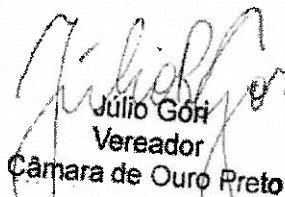 Júlio Gori
Vereador
Câmara de Ouro Preto